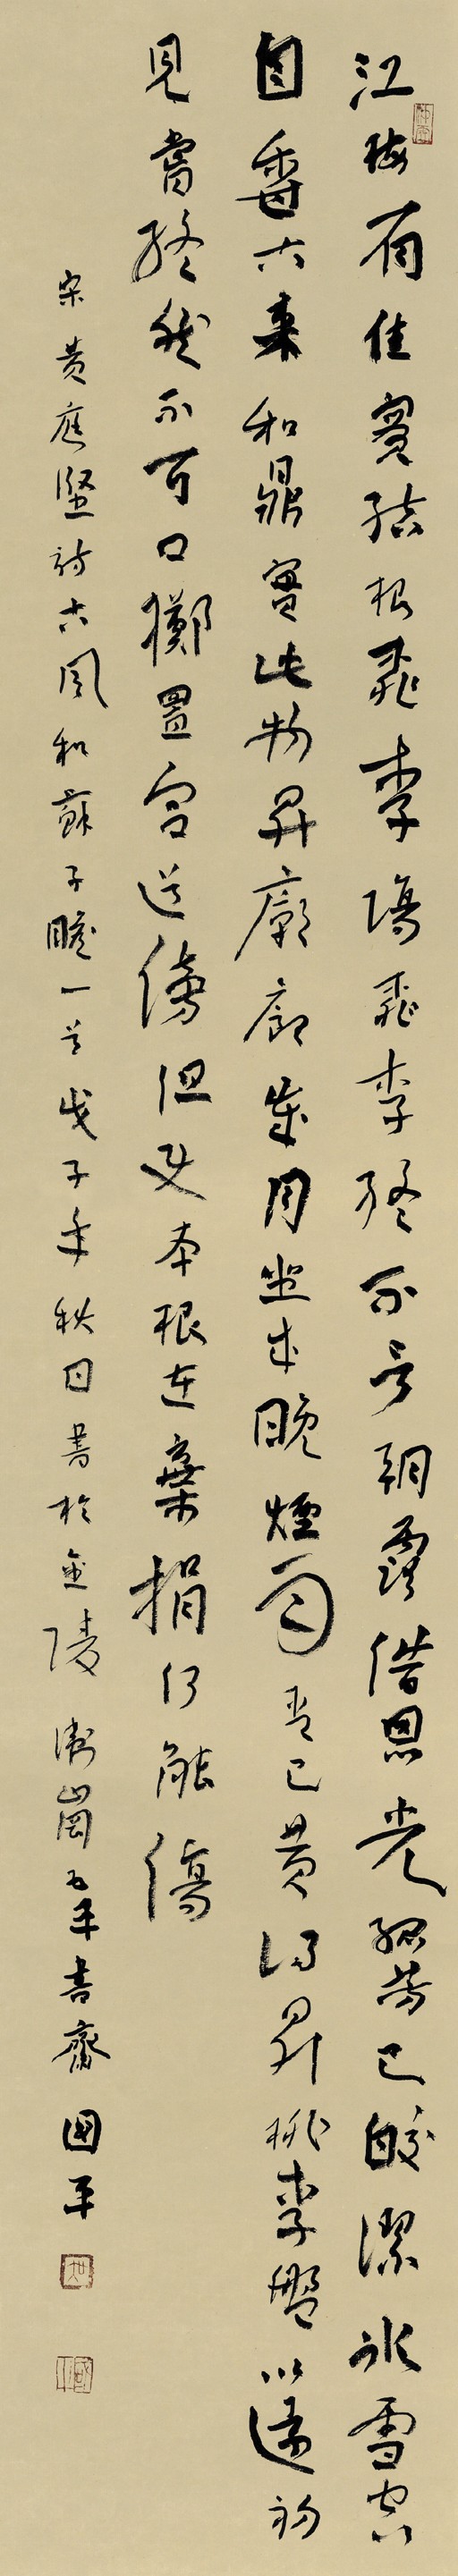 江梅有佳實結根桃李場桃李終不言朝露借恩光孤芳已皎潔冰雪空
自香古來和鼎實此物昇廟廊歲月坐成晚煙雨青已黃得昇桃李盤以遠初
見嘗終然不可口擲置官道傍但使本根在棄捐何能傷
宋黃庭堅詩古風和蘇子瞻一首戊子年秋日書於金陵衛崗書齋國平